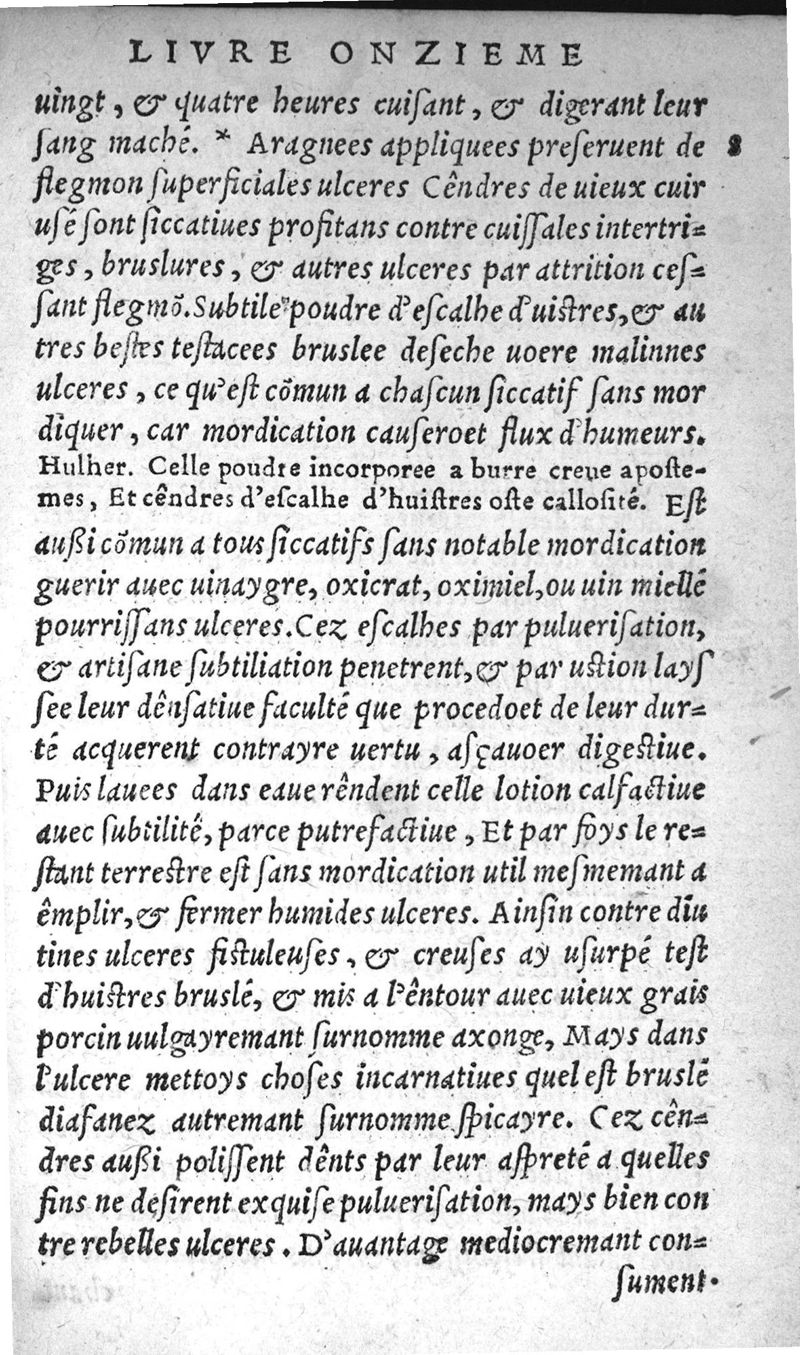 LIVRE ONZIEME
uingt, & quatre heures cuiſant, & digerant leur
ſang maché. * Aragnees appliquees preſeruent de 8
flegmon ſuperficiales ulceres Cêndres de uieux cuir
uſé ſont ſiccatiues profitans contre cuiſſales intertri=
ges, bruslures, & autres ulceres par attrition ceſ=
ſant flegmõ. Subtile poudre d'eſcalhe d'uiſtres, & au
tres beſtes teſtacees bruslee deſeche uoere malinnes
ulceres, ce qu'eſt cõmun a chaſcun ſiccatif ſans mor
diquer, car mordication cauſeroet flux d'humeurs.
Hulher. Celle poudre incorporee a burre creue apoſte-
mes, Et cêndres d'eſcalhe d'huiſtres oſte calloſité. Eſt
außi cõmun a tous ſiccatifs ſans notable mordication
guerir auec uinaygre, oxicrat, oximiel, ou uin miellé
pourriſſans ulceres. Cez eſcalhes par pulueriſation,
& artiſane ſubtiliation penetrent, & par uſtion layſ
ſee leur dênſatiue faculté que procedoet de leur dur=
té acquerent contrayre uertu, aſçauoer digeſtiue.
Puis lauees dans eaue rêndent celle lotion calfactiue
auec ſubtilité, parce putrefactiue, Et par foys le re=
ſtant terreſtre eſt ſans mordication util meſmemant a
êmplir, & fermer humides ulceres. Ainſin contre diu
tines ulceres fiſtuleuſes, & creuſes ay uſurpé teſt
d'huiſtres bruslé, & mis a l'êntour auec uieux grais
porcin uulgayremant ſurnomme axonge, Mays dans
l'ulcere mettoys choſes incarnatiues quel eſt bruslé
diafanez autremant ſurnomme ſpicayre. Cez cên=
dres außi poliſſent dênts par leur aſpreté a quelles
fins ne deſirent exquiſe pulueriſation, mays bien con
tre rebelles ulceres. D'auantage mediocremant con=
ſument.